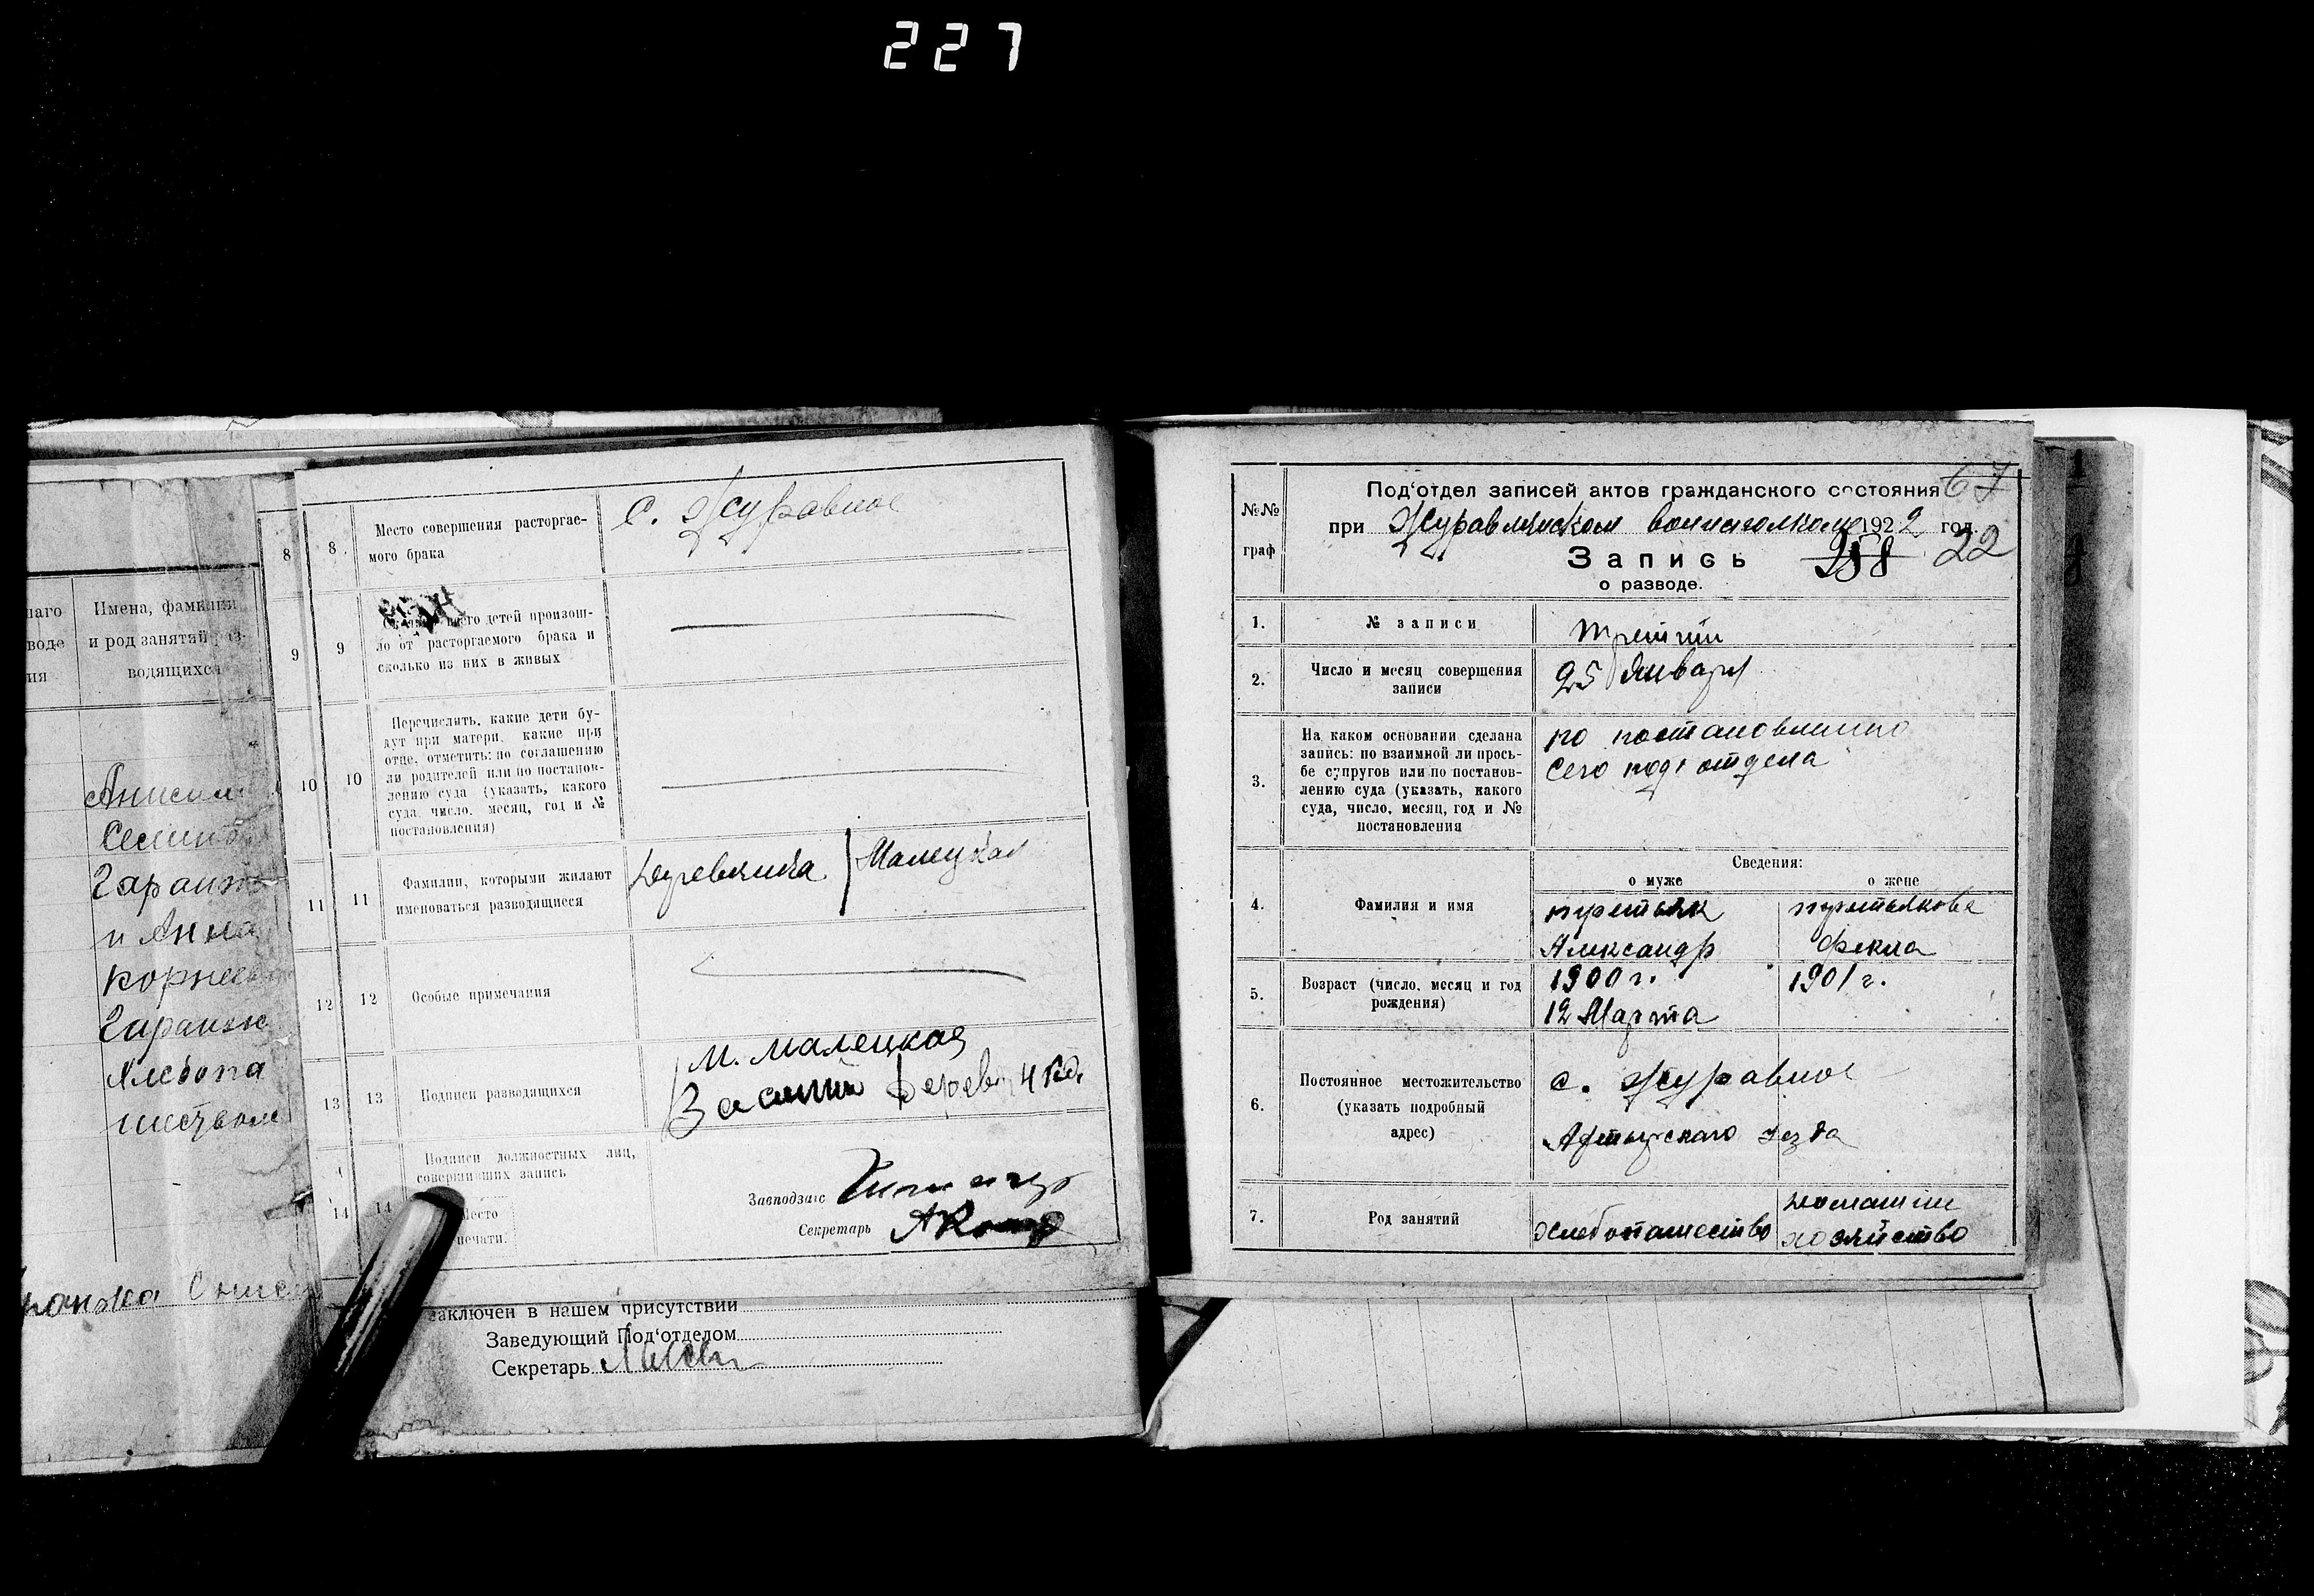 227
Имена, фамилии
и род занятий раз-
водящихся
Анисим
Гаранж
и Анна
Корнее
Гаранж
Хлебопа
шеством
8
8.
Место совершения расторгае-
мого брака
с. Журавное
9
9
всего детей произош-
ло от расторгаемого брака и
сколько из них в живых
10
10
Перечислить, какие дети бу-
дут при матери, какие при
отце, отметить: по соглашению
ли родителей или по постанов-
лению суда (указать, какого
суда, число, месяц, год и №
постановления)
11
11
Фамилии, которыми желают
именоваться разводящиеся
Малецкая
12
12
Особые примечания
13
13
Подписи разводящихся
М. Малецкая
Василий
14
14
Подписи должностных лиц,
совершивших запись
Место
печати.
Завподзагс
Секретарь
заключен в нашем присутствии
Заведующий Под‘отделом
Секретарь
№№
граф
Под‘отдел записей актов гражданского состояния 67
при Журавлянском волисполкоме 1922 год.
Запись 258 22
о разводе.
1.
№ записи
третий
2.
Число и месяц совершения
записи
25 Января
3.
На каком основании сделана
запись: по взаимной ли прось-
бе супругов или по постанов-
лению суда (указать, какого
суда, число, месяц, год и №
постановления
по постановлению
сего под‘отдела
Сведения:
о муже
о жене
4.
Фамилия и имя
Третьяк
Александр
Третьякова
Фекла
5.
Возраст (число, месяц и год
рождения)
1900 г.
12 Марта
1901 г.
6.
Постоянное местожительство
(указать подробный
адрес)
с. Журавное
Ахтырского уезда
7.
Род занятий
хлебопашество
домашнее
хозяйство